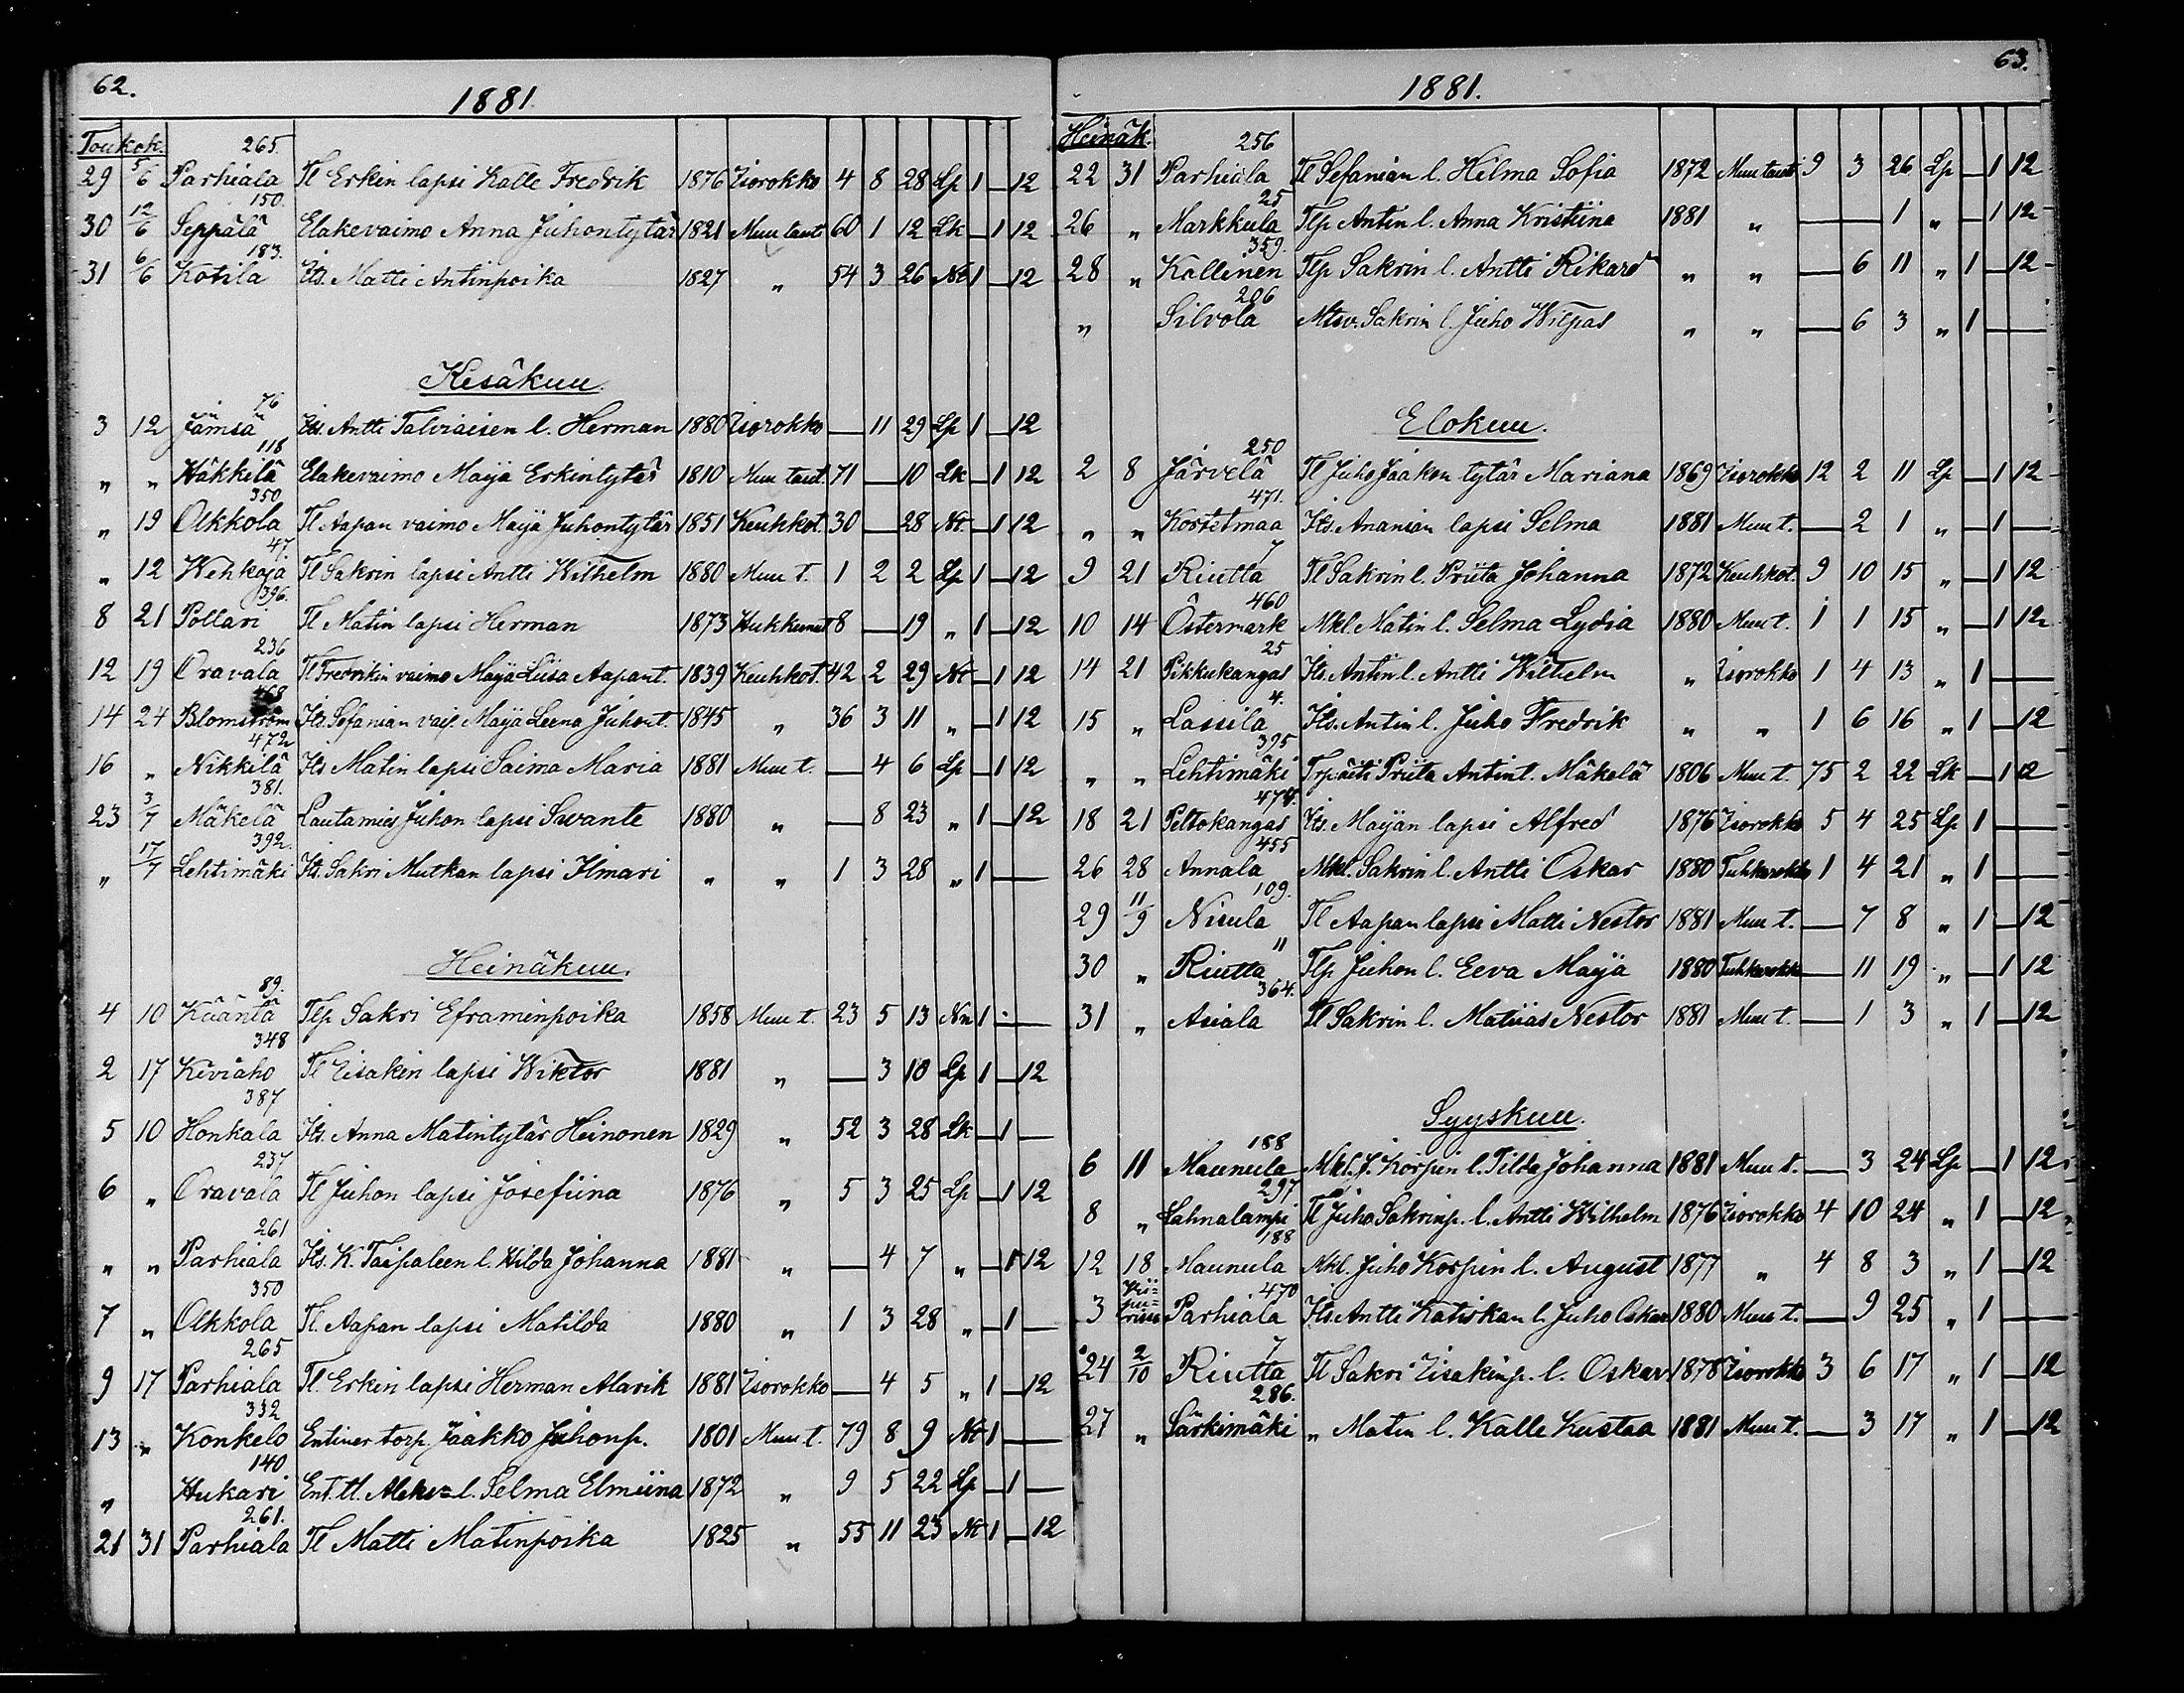 62.
1881.
Toukok. 265.
29 5/6 Parhiala Tl Erkin lapsi Kalle Fredrik 1876 Isorokko 4 8 28 Lp 1 — 12
150.
30 12/6 Seppälä Elakevaimo Anna Juhontytär 1821 Muu taut 60 1 12 Lk — 1 12
183.
31 6/6 Kotila Its. Matti Antinpoika 1827 " 54 3 26 Nt 1 — 12
Kesäkuu.
76
3 12 Jämsä Its. Antti Talviaisen l. Herman 1880 Isorokko — 11 29 Lp 1 — 12
118
" " Häkkilä Elakevaimo Maija Erkintytär 1810 Muu taut. 71 — 10 Lk — 1 12
350
" 19 Olkkola Tl. Aapan vaimo Maija Juhontytär 1851 Keuhkot. 30 — 28 Nt. — 1 12
47.
" 12 Wehkoja Tl Sakrin lapsi Antti Wilhelm 1880 Muu t. 1 2 2 Lp 1 — 12
396.
8 21 Pollari Tl Matin lapsi Herman 1873 Hukkunut 8 — 19 " 1 — 12
236
12 19 Oravala Tl Fredrikin vaimo Maija Liisa Aapant. 1839 Keuhkot. 42 2 29 Nt — 1 12
468
14 24 Blomström Its. Sefanian vaip. Maija Leena Juhont. 1845 " 36 3 11 " — 1 12
472
16 " Nikkilä Its Matin lapsi Saima Maria 1881 Muu t. — 4 6 Lp — 1 12
381.
23 3/7 Mäkelä Lautamies Juhon lapsi Swante 1880 " — 8 23 " 1 — 12
392.
" 17/7 Lehtimäki Its. Sakri Mutkan lapsi Ilmari " " 1 3 28 " 1 —
Heinäkuu.
89.
4 10 Kääntä Tlp Sakri Eframinpoika 1858 Muu t. 23 5 13 Nn 1 —
348
2 17 Kiviaho Tl Eisakin lapsi Wiktor 1881 " — 3 10 Lp 1 — 12
387
5 10 Honkala Its. Anna Matintytär Heinonen 1829 " 52 3 28 Lk — 1 —
237
6 " Oravala Tl Juhon lapsi Josefiina 1876 " 5 3 25 Lp — 1 12
261
" " Parhiala Its. K. Taipaleen l. Hilda Johanna 1881 " — 4 7 " — 1 12
350
7 " Olkkola Tl. Aapan lapsi Matilda 1880 " 1 3 28 " — 1 —
265
9 17 Parhiala Tl. Erkin lapsi Herman Alarik 1881 Isorokko — 4 5 " 1 — 12
332
13 " Konkelo Entinen torp. Jaakko Juhonp. 1801 Muu t. 79 8 9 Nt 1 —
140
" Hukari Ent. tl. l. Selma Elmiina 1872 " 9 5 22 Lp — 1 —
261.
21 31 Parhiala Tl Matti Matinpoika 1825 " 55 11 23 Nt 1 — 12
63.
1881.
Heinäk. 256
22 31 Parhiala Tl Sefanian l. Hilma Sofia 1872 Muu tauti 9 3 26 Lp — 1 12
25
26 " Markkula Tlp Antin l. Anna Kristiina 1881 " — — 1 " — 1 12
359.
28 " Kallinen Tlp Sakrin l. Antti Rikard " " — 6 11 " 1 — 12
206
" Silvola Mtsv. Sakrin l. Juho Wilpas " " — 6 3 " 1 —
Elokuu.
250
2 8 Järvelä Tl Juho Jaakon tytär Mariana 1869 Isorokko 12 2 11 Lp — 1 12
471.
" " Kortetmaa Its. Ananian lapsi Selma 1881 Muu t. — 2 1 " — 1 —
7
9 21 Riutta Tl Sakrin l. Priita Johanna 1872 Keuhkot. 9 10 15 " — 1 12
460
10 14 Östermark Mkl. Matin l. Selma Lydia 1880 Muu t. 1 1 15 " — 1 12
25
14 21 Pikkukangas Its. Antin l. Antti Wilhelm " Isorokko 1 4 13 " 1 —
4.
15 " Lassila Its. Antin l. Juho Fredrik " " 1 6 16 " 1 — 12
395
" " Lehtimäki Trp. äiti Priita Antint. Mäkelä 1806 Muu t. 75 2 22 Lk — 1 12
474.
18 21 Peltokangas Its. Maijan lapsi Alfred 1876 Isorokko 5 4 25 Lp 1 —
455
26 28 Annala Mkl. Sakrin l. Antti Oskar 1880 Tuhkarokko 1 4 21 " 1 —
109.
29 11/9 Nisula Tl Aapan lapsi Matti Nestor 1881 Muu t. — 7 8 " 1 — 12
11
30 " Riutta Tlp Juhon l. Eeva Maija 1880 Tuhkarokko — 11 19 " — 1 12
364.
31 " Asiala Tl Sakrin l. Matias Nestor 1881 Muu t. — 1 3 " 1 — 12
Syyskuu.
188
6 11 Maunula Mkl. J. Korpin l. Tilda Johanna 1881 Muu t. — 3 24 Lp — 1 12
297
8 " Lahnalampi Tl Juho Sakrinp. l. Antti Wilhelm 1876 Isorokko 4 10 24 " 1 — 12
188
12 18 Maunula Mkl. Juho Korpin l. August 1877 " 4 8 3 " 1 — 12
470
3 Parhiala Its Antti Katiskan l. Juho Oskar 1880 Muu t. — 9 25 " 1 —
7
24 2/10 Riutta Tl Sakri Iisakinp. l. Oskar 1878 Isorokko 3 6 17 " 1 — 12
286.
27 " Särkimäki " Matin l. Kalle Kustaa 1881 Muu t. — 3 17 " 1 — 12